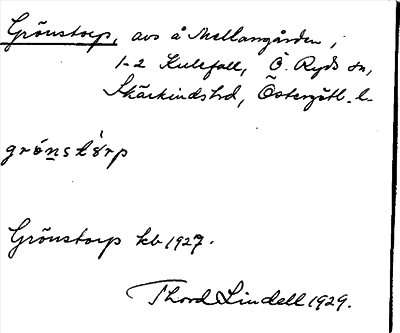 Grönstorp, avs å Mellangården,
1-2 Kulefall, Ö. Ryds sn,
Skärkinds hd, Östergötl. l.
grönstorp
Grönstorp kb 1927.
Thord Lindell 1929.